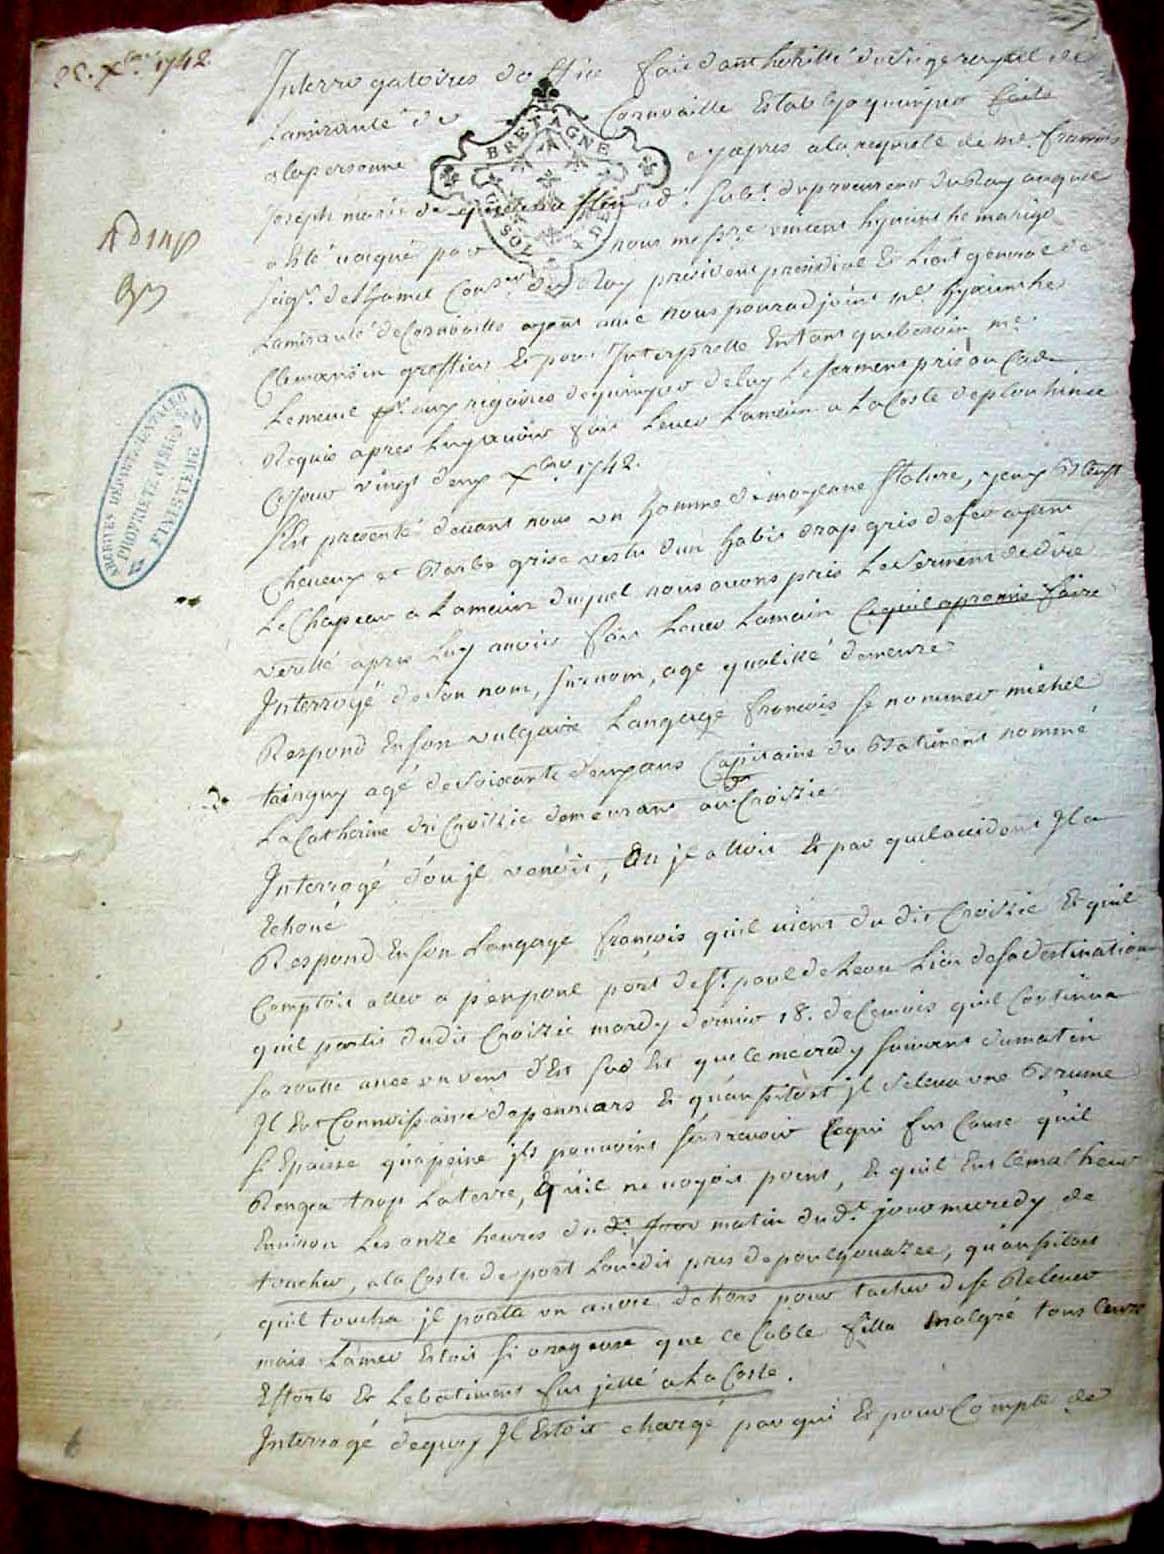 22. Xbre 1742
Interrogatoires d'office fait d'authoritté du siege royal de
Lamirauté de Cornoaille Establÿ a quimper faits
a la personne cy apres a la requeste de me. francois
Joseph marie de ad. subt. du procureur du Roy auquel
a esté vacqué par nous messre. vincent hyacinthe
seigr. de Conser. du Roy president presidial Et Lieut general de
Lamirauté de Cornoaille ayant avec nous pour adjoint me. hyacinthe
greffier Et pour Interprette Entant que besoin me.
Lemeur aux regaires de quimper de luy le serment pris au Cas
Requis apres Luy avoir fait Lever Lamain a La Coste de plouhinec
Ce jour vingt deux Xbre 1742.
S'Est presenté devant nous un homme de moyenne stature, yeux bleufs
Cheveux et Barbe grise vestu d'un habit drap gris de fer ayant
Le Chapeau a Lamain duquel nous avons pris Le serment de dire
veritté apres Luy avoir fait Lever Lamain Ce quil a promis faire
Interrogé de son nom, surnom, age qualitté demeure
Respond En son vulgaire Langage francois se nommer michel
tainguy agé de soixante deux ans Capitaine du Batiment nommé
La Catherine du Croizic demeurant au Croizic
Interrogé d'où jl venoit, Où jl alloit Et par quel accidant Il a
Echoué
Respond En son Langage francois quil vient du dit Croizic Et quil
Comptoit aller a penpoul port de St. paul de Leon Lieu de sa destination
quil partit du dit Croizic mardy dernier 18. de Ce mois quil Continua
sa routte avec un vent d'Est sud Est que le mecredy suivant du matin
Il Eut Connoissance de penmars Et qu'aussitost jl s'eleva une Brume
si Epaisse qu'a peine jls pouvoint s'entrevoir Ce qui fut Cause qu'il
Rengea trop La terre, qu'il ne voyoit point, Et qu'il Eut le malheur
Environ Les onze heures du dt. jour matin du dt. jour mecredy de
toucher, a la Coste de port Loüedit pres de poulgouazec, qu'aussitost
quil toucha jl porta un ancre dehors pour tacher de se Relever
mais La mer Estoit si orageuse que le Cable filla malgré tous leurs
Efforts Et Le batiment fut jetté a La Coste.
Interrogé de quoy Il Estoit chargé par qui Et pour Compte de
BRETAGNE
ARCHIVES DEPARTEMENTALES
PROPRIETE PUBLIQUE
FINISTERE